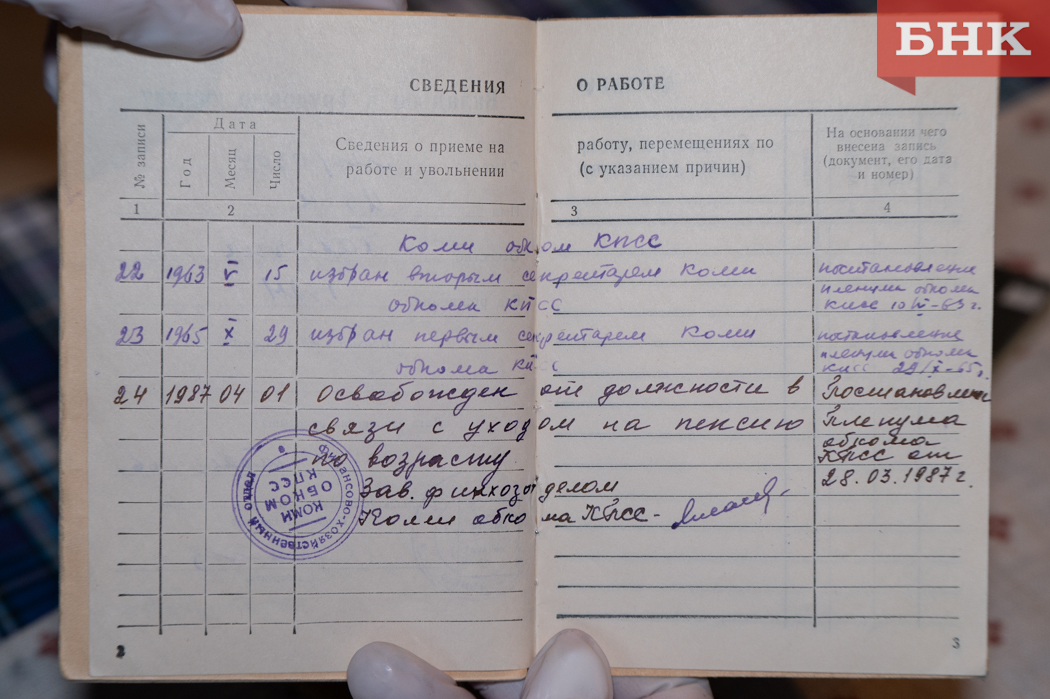 БНК
СВЕДЕНИЯ О РАБОТЕ
№ записи
Дата
Год
Месяц
Число
Сведения о приеме на работу, перемещениях по
работе и увольнении (с указанием причин)
На основании чего
внесена запись
(документ, его дата
и номер)
1 2 3 4
Коми обком КПСС
22 1963 V 15 избран вторым секретарем Коми постановление
обкома КПСС пленума обкома
КПСС 63 г.
23 1965 X 29 избран первым секретарем Коми постановление
обкома КПСС пленума обкома
КПСС 29/X-65г.
24 1987 04 01 Освобожден от должности в Постановление
связи с уходом на пенсию Пленума
по возрасту обкома
КПСС от
Зав. финхозотделом 28.03.1987 г.
Коми обкома КПСС-
Финансово-хозяйственный отдел
КОМИ
ОБКОМ
КПСС
2 3